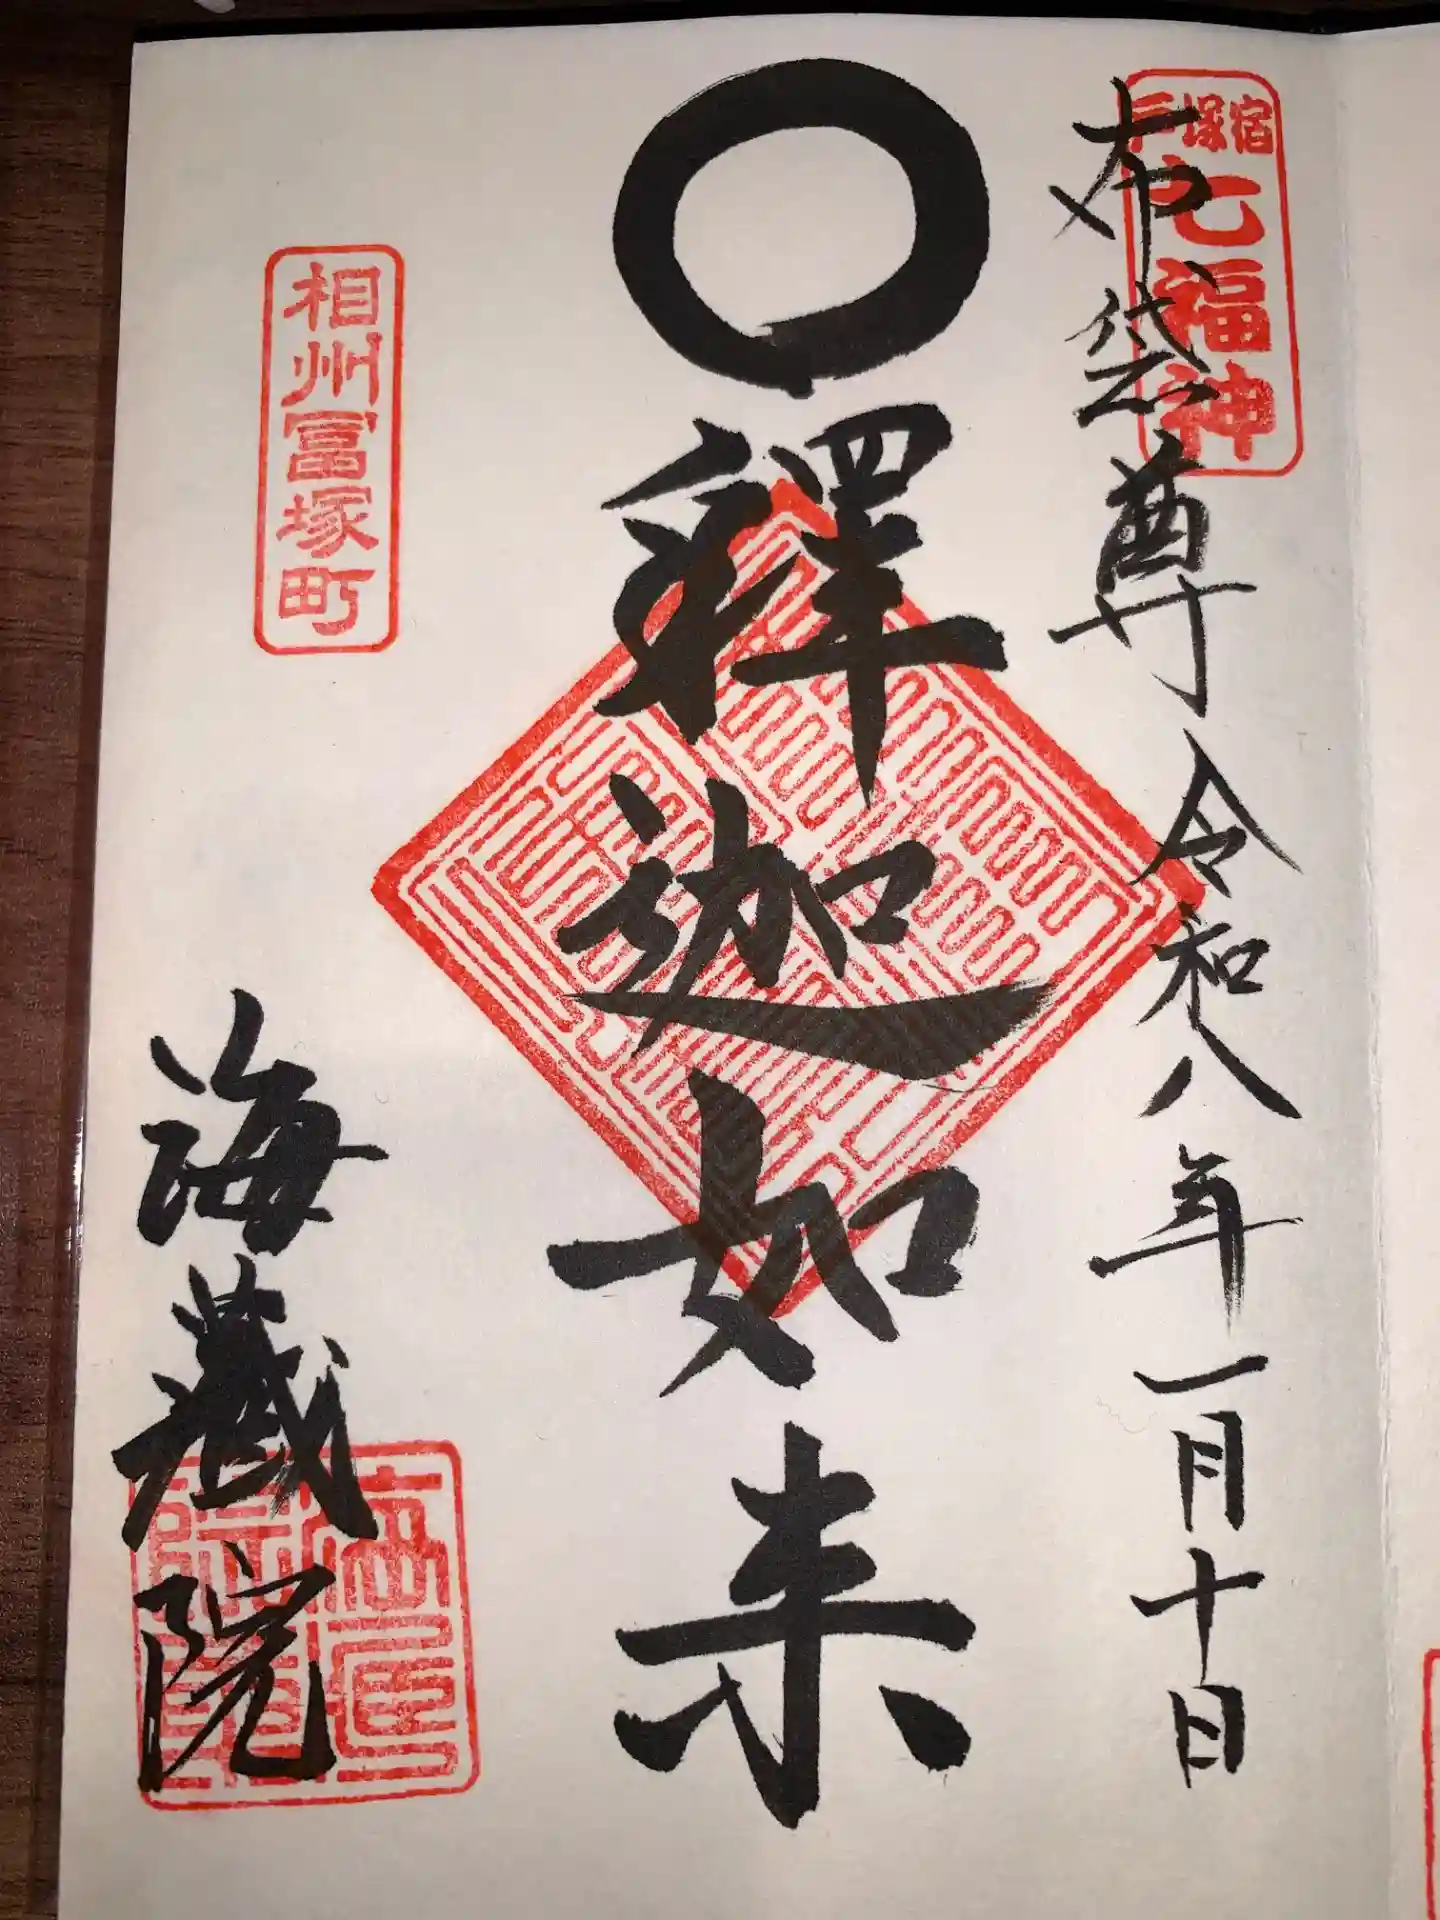 戸塚宿
七福神
布袋尊 令和八年一月十日
釋迦如来
相州冨塚町
海蔵院